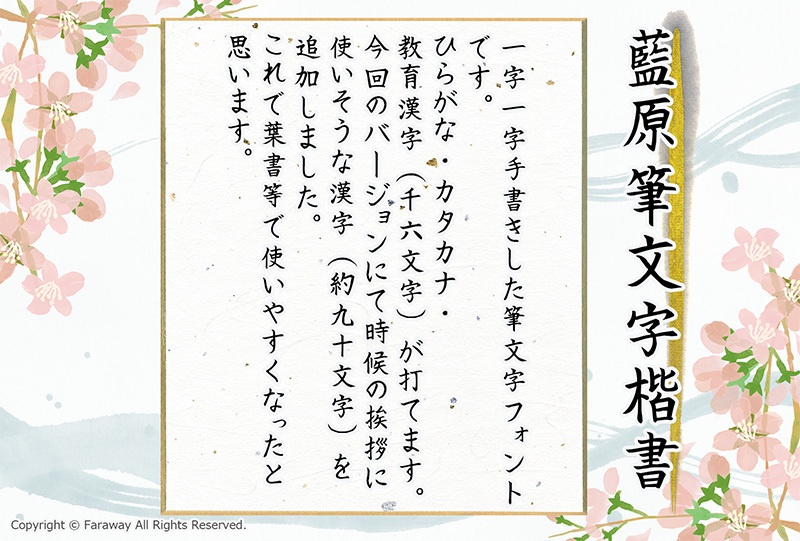 藍原筆文字楷書
一字一字手書きした筆文字フォント
です。
ひらがな・カタカナ・
教育漢字（千六文字）が打てます。
今回のバージョンにて時候の挨拶に
使いそうな漢字（約九十文字）を
追加しました。
これで葉書等で使いやすくなったと
思います。
Copyright © Faraway All Rights Reserved.